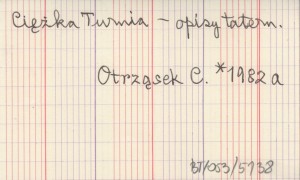 Ciężka Turnia – opisy tatern.
Otrząsek C. *1982a
BT/053/5738